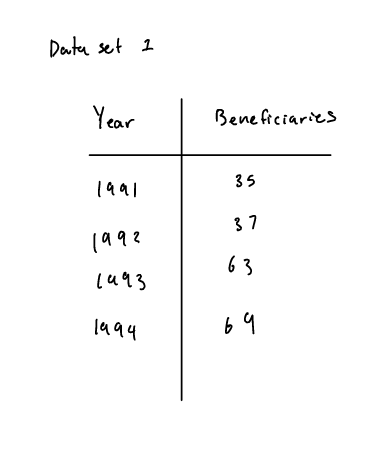 Data set 1
Year Beneficiaries
1991 35
1992 37
1993 63
1994 69